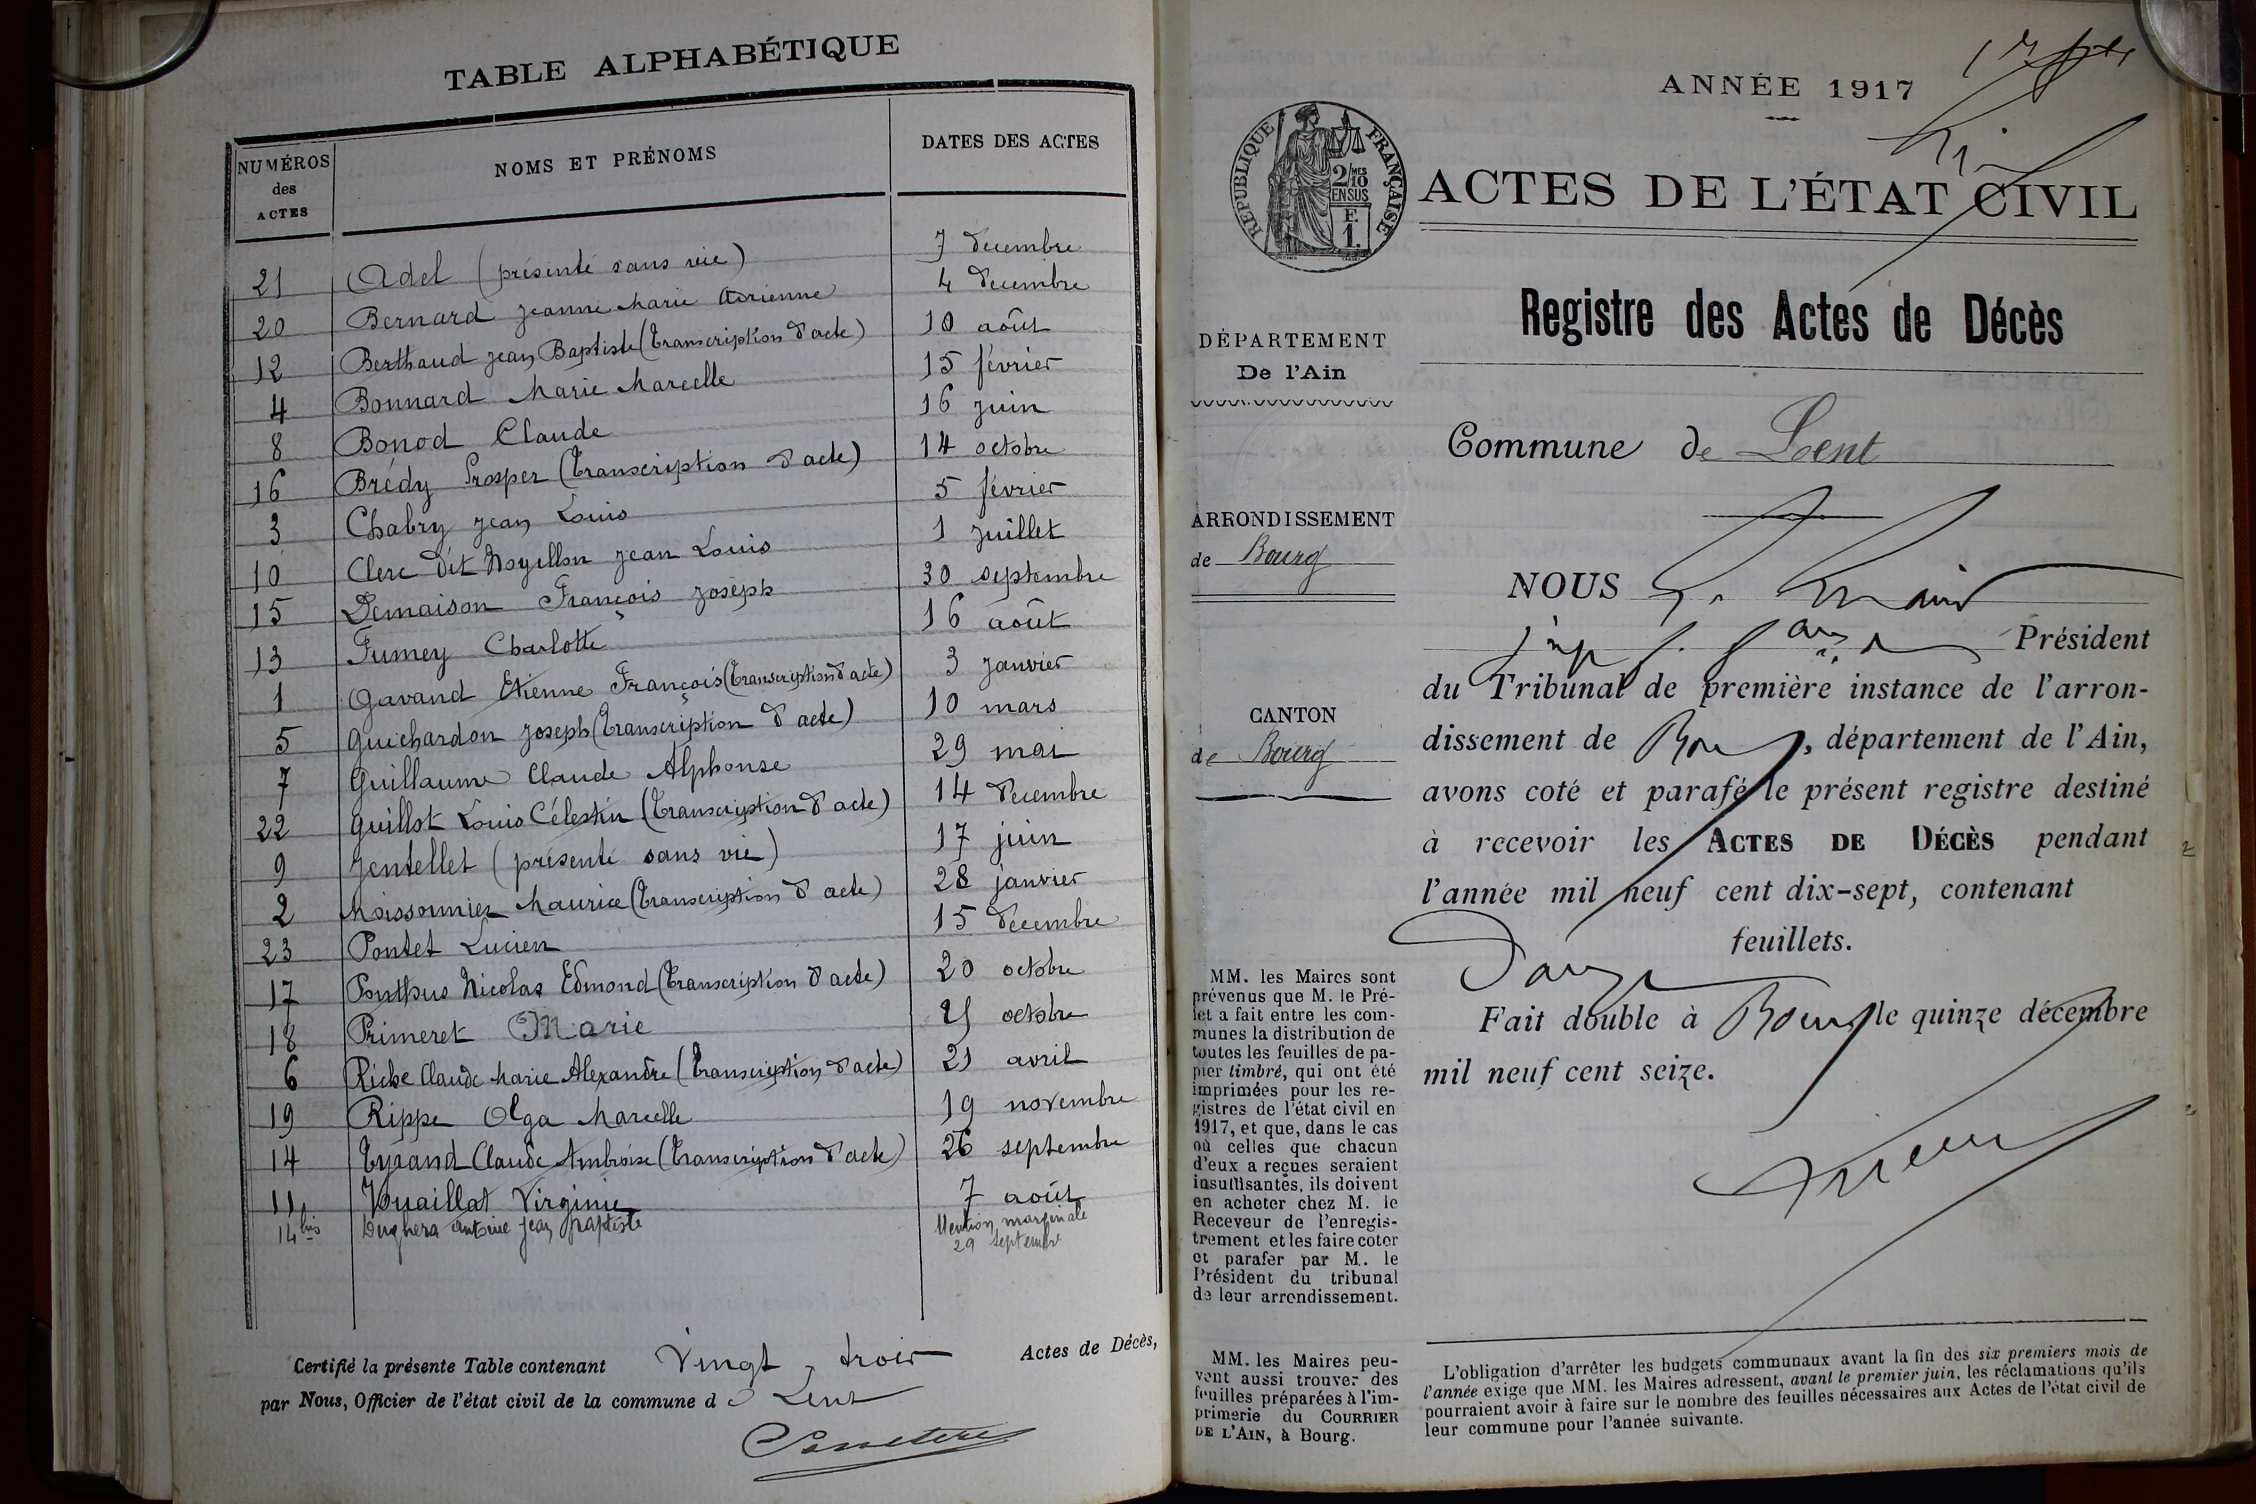 TABLE ALPHABÉTIQUE
NUMÉROS des ACTES NOMS ET PRÉNOMS DATES DES ACTES
21 Adel (présenté sans vie) 7 decembre
20 Bernard Jeanne Marie Adrienne 4 decembre
12 Berthaud Jean Baptiste (Transcription d'acte) 10 août
4 Bonnard Marie Marcelle 15 février
8 Bonod Claude 16 juin
16 Brédy Prosper (Transcription d'acte) 14 octobre
3 Chabry Jean Louis 5 février
10 Clerc dit Noyellon Jean Louis 1 juillet
15 Demaison François Joseph 30 septembre
13 Fumey Charlotte 16 août
1 Gavand Etienne François (Transcription d'acte) 3 janvier
5 Guichardon Joseph (Transcription d'acte) 10 mars
7 Guillaume Claude Alphonse 29 mai
22 Guillot Louis Célestin (Transcription d'acte) 14 decembre
9 Jentellet (présenté sans vie) 17 juin
2 Moissonnier Maurice (Transcription d'acte) 28 janvier
23 Pontet Lucien 15 decembre
17 Ponthus Nicolas Edmond (Transcription d'acte) 20 octobre
18 Primeret Marie octobre
6 Riche Claude Marie Alexandre (Transcription d'acte) 21 avril
19 Rippe Olga Marcelle 19 novembre
14 Tyrand Claude Ambroise (Transcription d'acte) 26 septembre
11 Vuaillat Virginie 7 août
14 bis Antoine Jean Baptiste Mention marginale
29 septembre
Certifié la présente Table contenant Vingt trois Actes de Décès,
par Nous, Officier de l'état civil de la commune de Lent
ANNÉE 1917
RÉPUBLIQUE FRANÇAISE
2/10 MES
EN SUS
F.
1.
ACTES DE L'ÉTAT CIVIL
Registre des Actes de Décès
DÉPARTEMENT
De l'Ain
Commune de Lent
ARRONDISSEMENT
de Bourg
CANTON
de Bourg
NOUS
Président
du Tribunal de première instance de l'arron-
dissement de Bourg, département de l'Ain,
avons coté et parafé le présent registre destiné
à recevoir les ACTES DE DÉCÈS pendant
l'année mil neuf cent dix-sept, contenant
feuillets.
Fait double à Bourg le quinze décembre
mil neuf cent seize.
MM. les Maires sont
prévenus que M. le Pré-
fet a fait entre les com-
munes la distribution de
toutes les feuilles de pa-
pier timbré, qui ont été
imprimées pour les re-
gistres de l'état civil en
1917, et que, dans le cas
où celles que chacun
d'eux a reçues seraient
insuffisantes, ils doivent
en acheter chez M. le
Receveur de l'enregis-
trement et les faire coter
et parafer par M. le
Président du tribunal
de leur arrondissement.
MM. les Maires peu-
vent aussi trouver des
feuilles préparées à l'im-
primerie du COURRIER
DE L'AIN, à Bourg.
L'obligation d'arrêter les budgets communaux avant la fin des six premiers mois de
l'année exige que MM. les Maires adressent, avant le premier juin, les réclamations qu'ils
pourraient avoir à faire sur le nombre des feuilles nécessaires aux Actes de l'état civil de
leur commune pour l'année suivante.